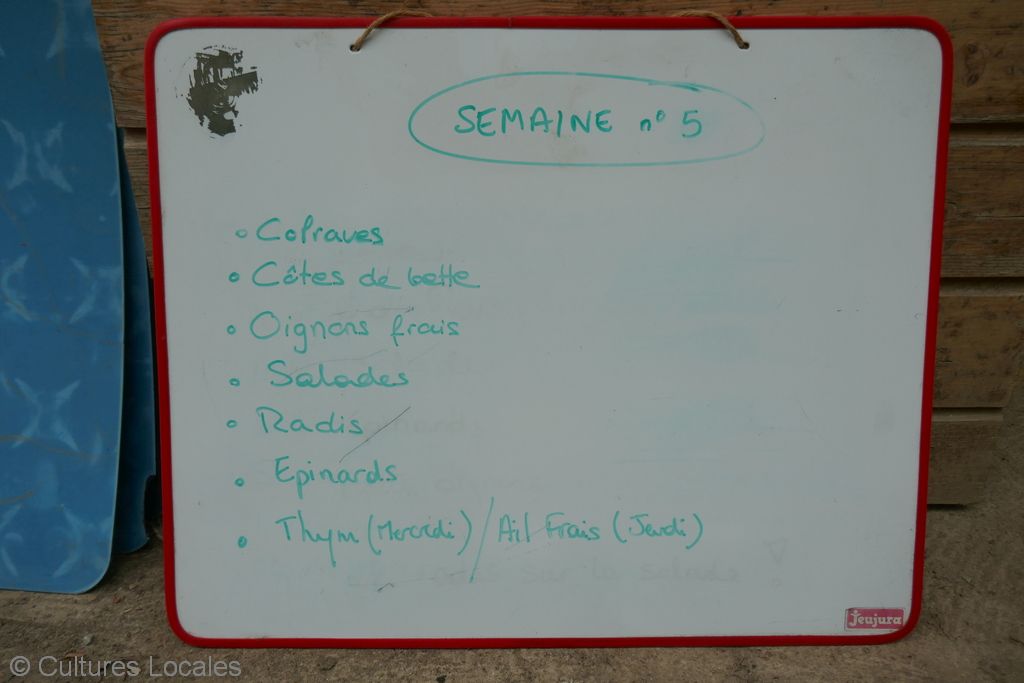 SEMAINE n° 5
• Colraves
• Côtes de bette
• Oignons frais
• Salades
• Radis
• Epinards
• Thym (Mercredi) / Ail Frais (Jeudi)
sur la salade
Jeujura
© Cultures Locales